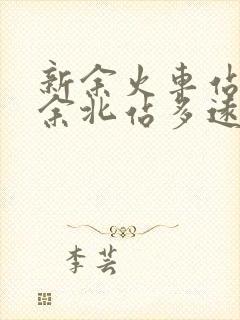 新余火車佔
余北佔多遠
李芸